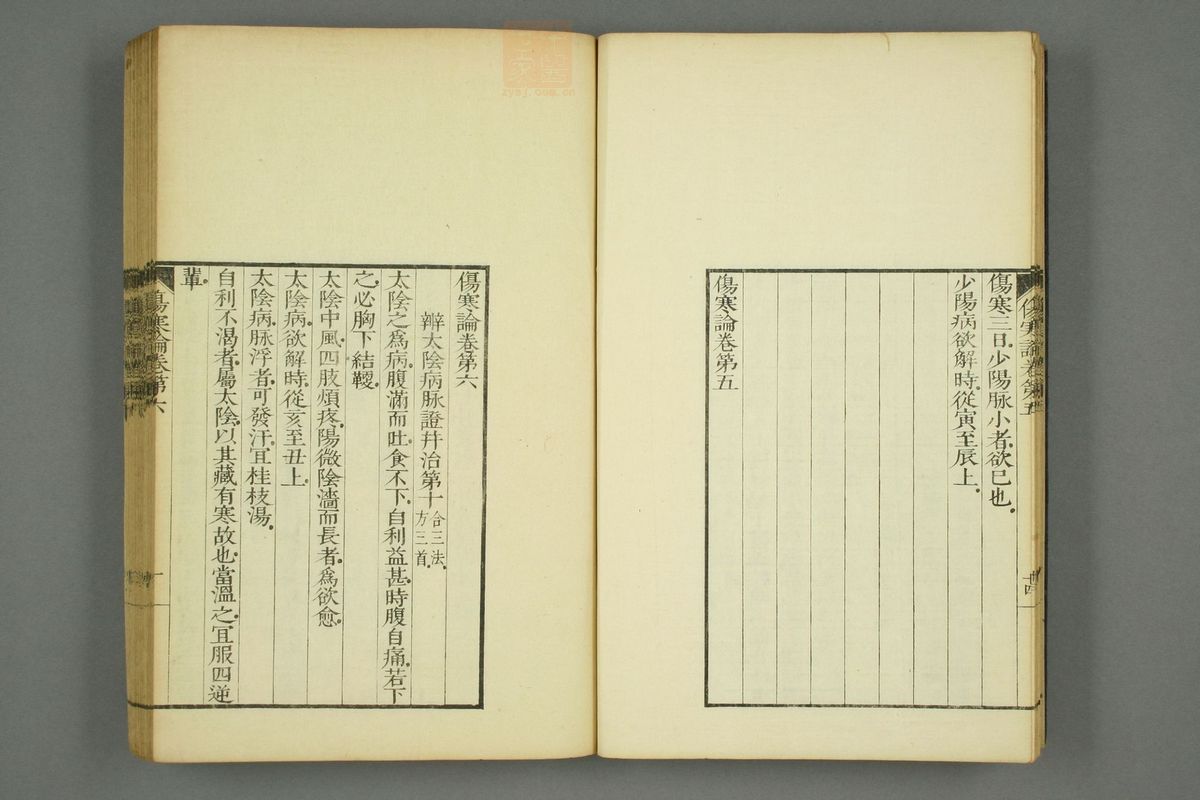 傷寒三日。少陽脉小者。欲已也。
少陽病欲解時。從寅至辰上。
傷寒論卷第五
傷寒論卷第六
辨太陰病脉證幷治第十 合三法。方三首。
太陰之爲病。腹滿而吐。食不下。自利益甚。時腹自痛。若下
之。必胸下結鞕。
太陰中風。四肢煩疼。陽微陰濇而長者。爲欲愈。
太陰病欲解時。從亥至丑上。
太陰病。脉浮者。可發汗。宜桂枝湯。
自利不渴者。屬太陰。以其藏有寒故也。當溫之。宜服四逆
輩。
傷寒論卷第六
zysj.com.cn